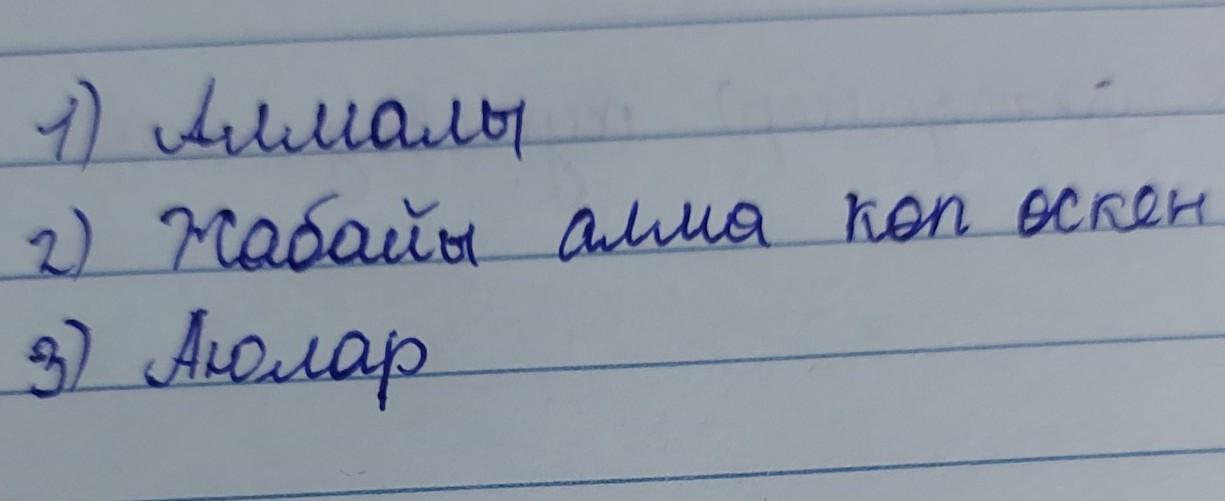 1) Алмалы
2) Жабайы алма көп өскен
3) Аюлар